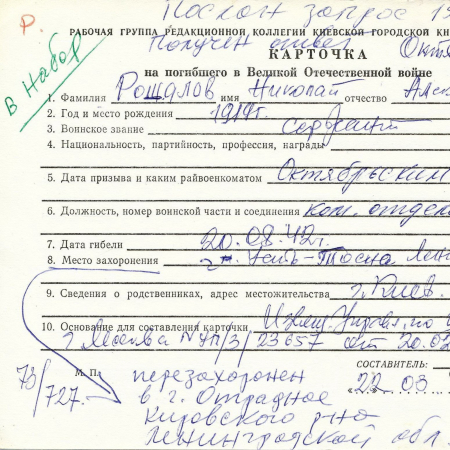 Р.
Послан запрос 19
РАБОЧАЯ ГРУППА РЕДАКЦИОННОЙ КОЛЛЕГИИ КИЕВСКОЙ ГОРОДСКОЙ КН
Получен ответ Октя
В Набор
КАРТОЧКА
на погибшего в Великой Отечественной войне
1. Фамилия Рощалов имя Николай отчество Алек
2. Год и место рождения 1919г.
3. Воинское звание Сержант
4. Национальность, партийность, профессия, награды
5. Дата призыва и каким райвоенкоматом Октябрьским
6. Должность, номер воинской части и соединения ком. отдел
7. Дата гибели 20.08.42г.
8. Место захоронения Усть-Тосна Лен
9. Сведения о родственниках, адрес местожительства г. Киев.
10. Основание для составления карточки Извещ. Управл. по
г Москва N УП/3/23657 от 20.02
СОСТАВИТЕЛЬ:
М. П. перезахоронен « 22 03
78/727.- в г. Отрадное
Кировского р-на
Ленинградской обл.